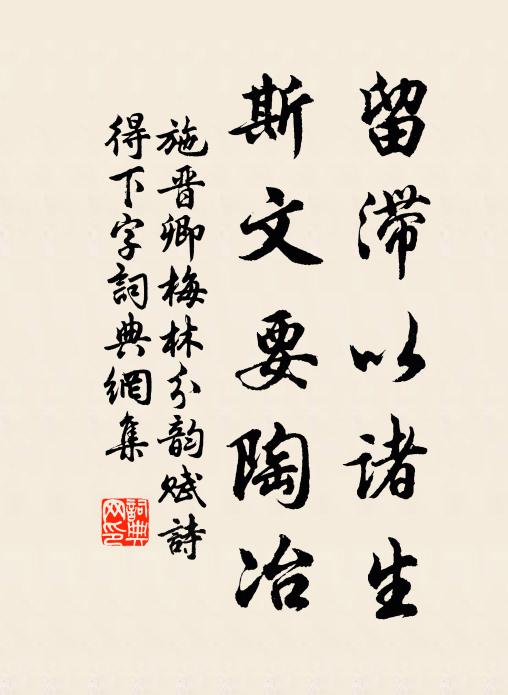 留滞以诸生
斯文要陶冶
施晋卿梅林分韵赋詩
得下字詞典網集
詞典
网印